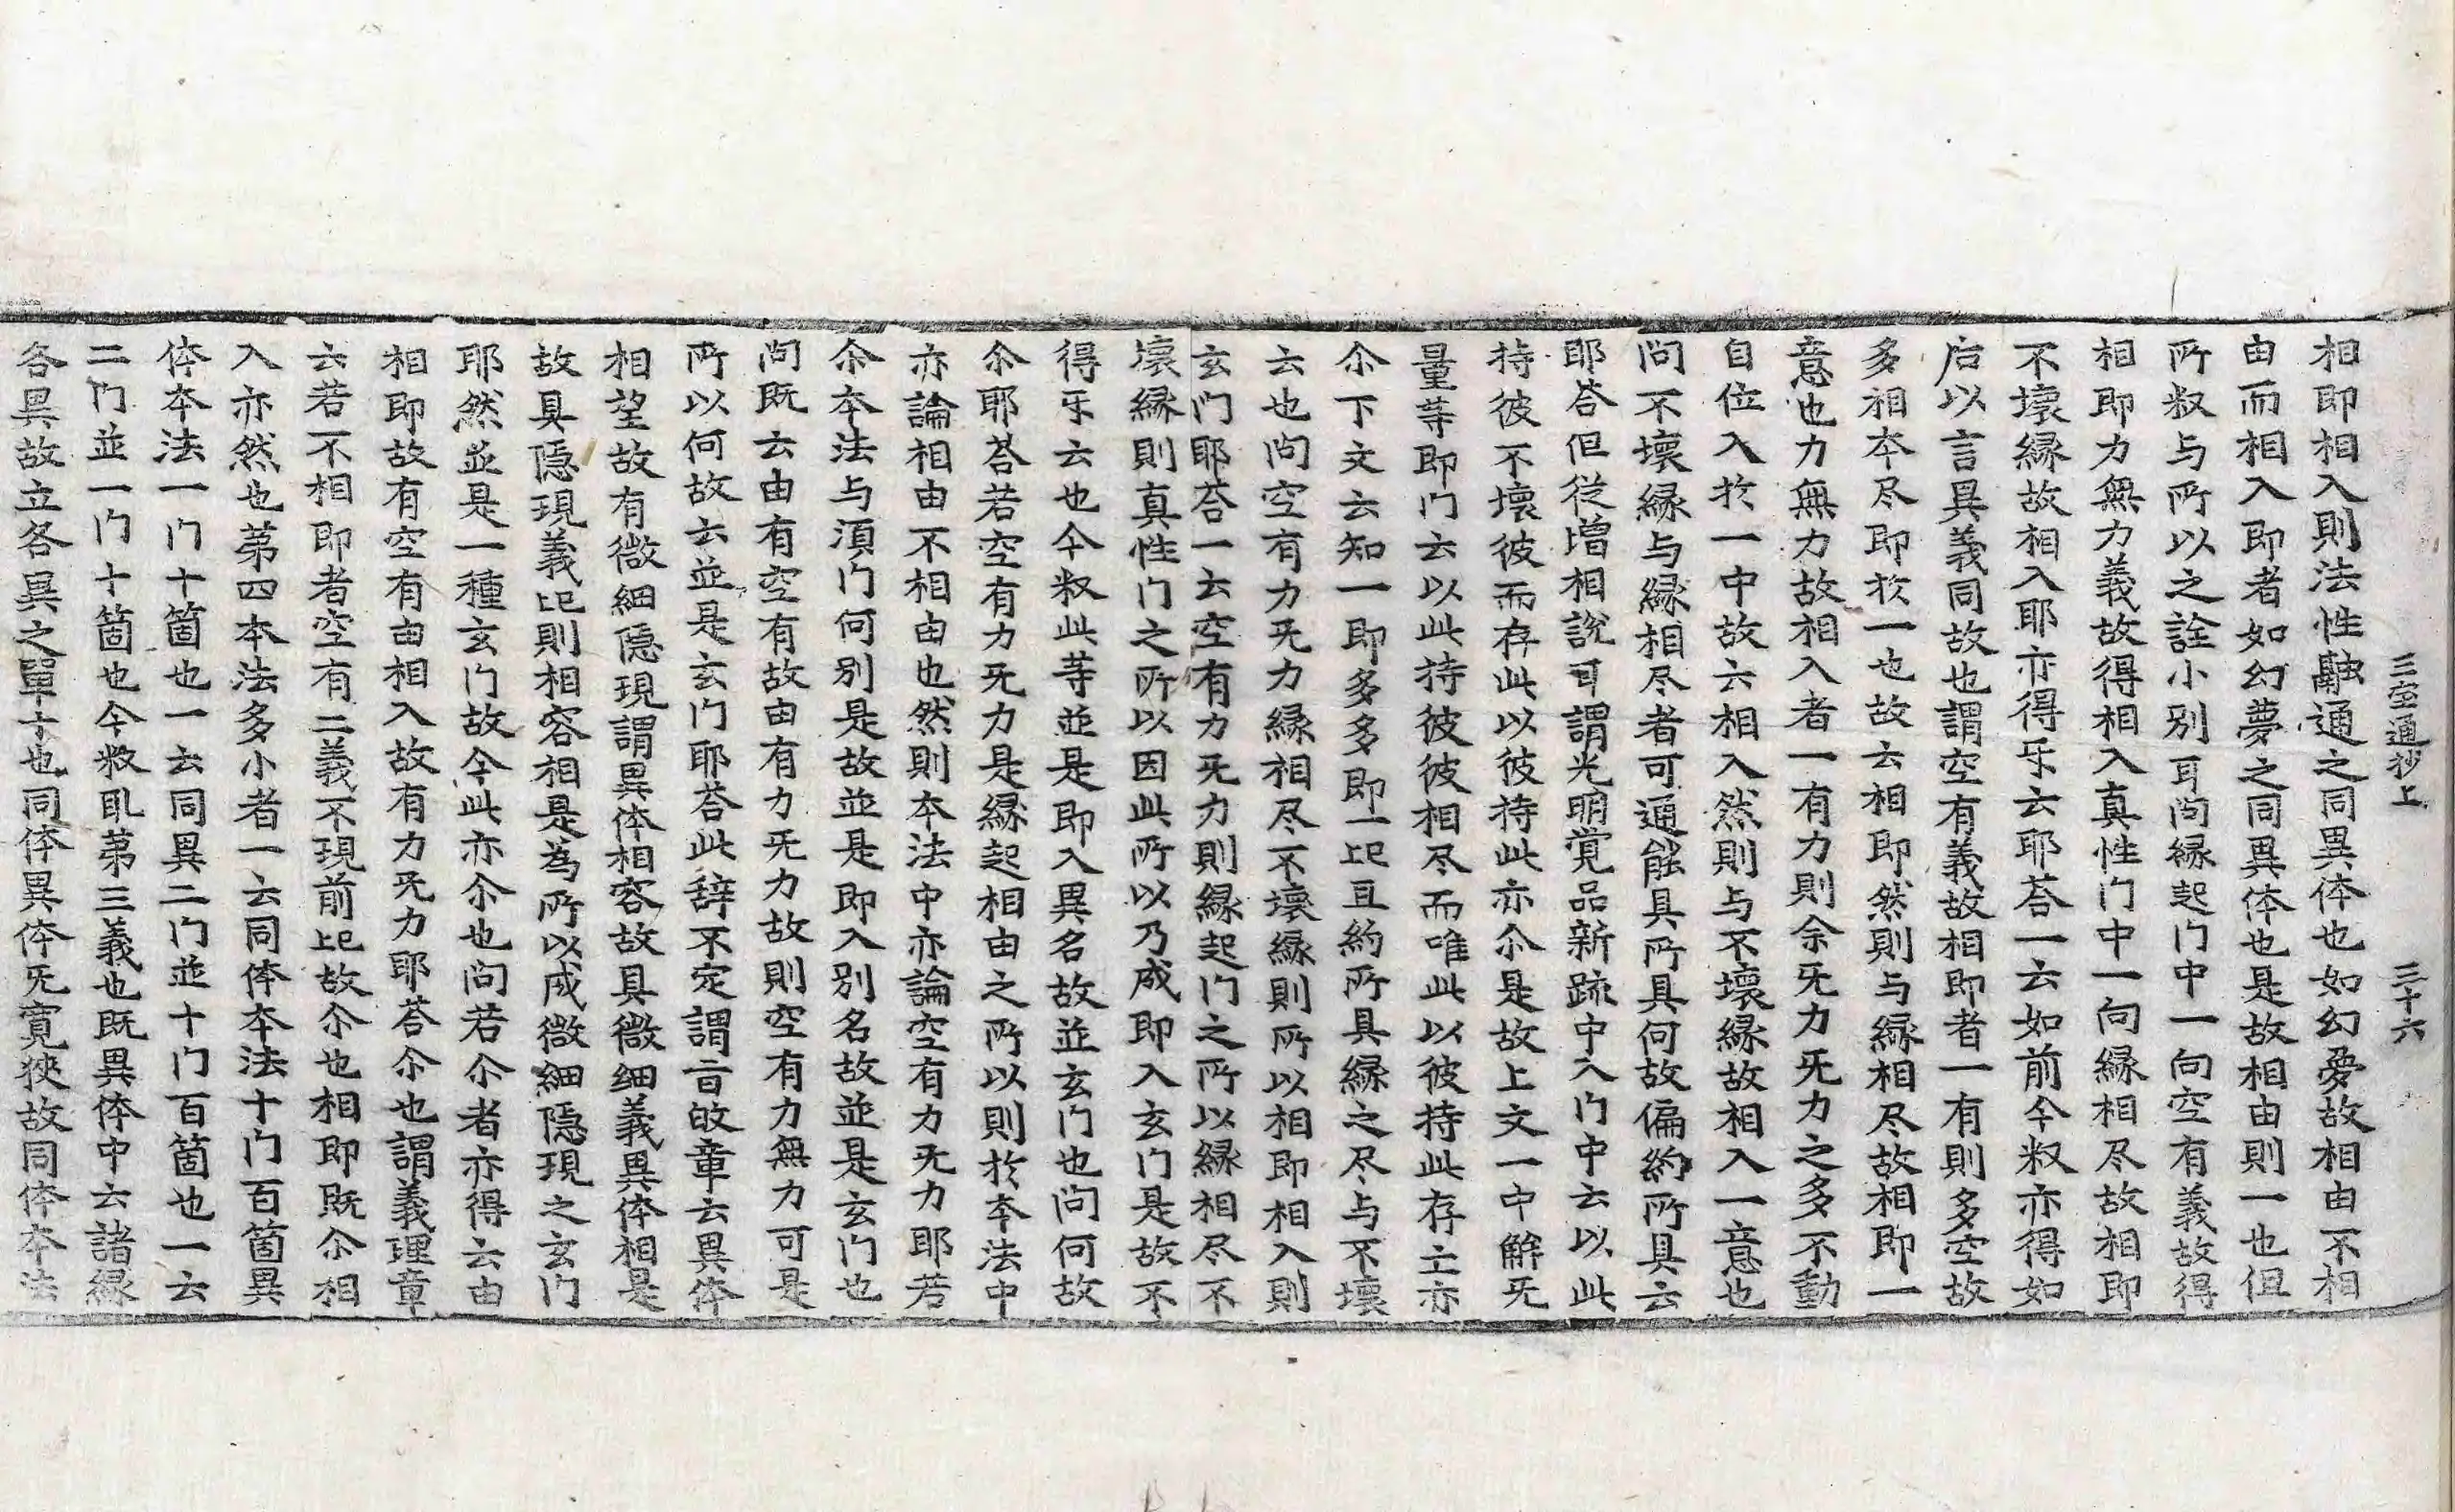 三宝通抄上　三十六
相即相入則法性融通之同異体也如幻夢故相由不相
由而相入即者如幻夢之同異体也是故相由則一也但
所叙与所以之詮小別耳问縁起门中一向空有義故得
相即力無力義故得相入真性门中一向縁相尽故相即
不壞縁故相入耶亦得乐云耶荅一云如前今叙亦得如
后以言具義同故也謂空有義故相即者一有則多空故
多相本尽即於一也故云相即然則与縁相尽故相即一
意也力無力故相入者一有力則余旡力旡力之多不動
自位入於一中故云相入然則与不壞縁故相入一意也
问不壞縁与縁相尽者可通能具所具何故偏約所具云
耶荅但從增相說可謂光明覚品新䟽中入门中云以此
持彼不壞彼而存此以彼持此亦尒是故上文一中解旡
量等即门云以此持彼彼相尽而唯此以彼持此存主亦
尒下文云知一即多多即一此且約所具縁之尽与不壞
云也问空有力旡力縁相尽不壞縁則所以相即相入則
玄门耶荅一云空有力旡力則縁起门之所以縁相尽不
壞縁則真性门之所以因此所以乃成即入玄门是故不
得乐云也今叙此等並是即入異名故並玄门也问何故
尒耶荅若空有力旡力是縁起相由之所以則於本法中
亦論相由不相由也然則本法中亦論空有力旡力耶若
尒本法与湏门何别是故並是即入别名故並是玄门也
问既云由有空有故由有力旡力故則空有力無力可是
所以何故云並是玄门耶荅此辞不定謂旨的章云異体
相望故有微細隐現謂異体相容故具微细義異体相是
故具隐現義此則相容相是為所以成微細隐現之玄门
耶然並是一種玄门故今此亦尒也问若尒者亦得云由
相即故有空有由相入故有力旡力耶荅尒也謂義理章
云若不相即者空有二義不現前此故尒也相即既尒相
入亦然也苐四本法多小者一云同体本法十门百箇異
体本法一门十箇也一云同異二门並十门百箇也一云
二门並一门十箇也今叙取苐三義也既異体中云諸縁
各異故立各異之單十也同体異体旡寛狹故同体本法